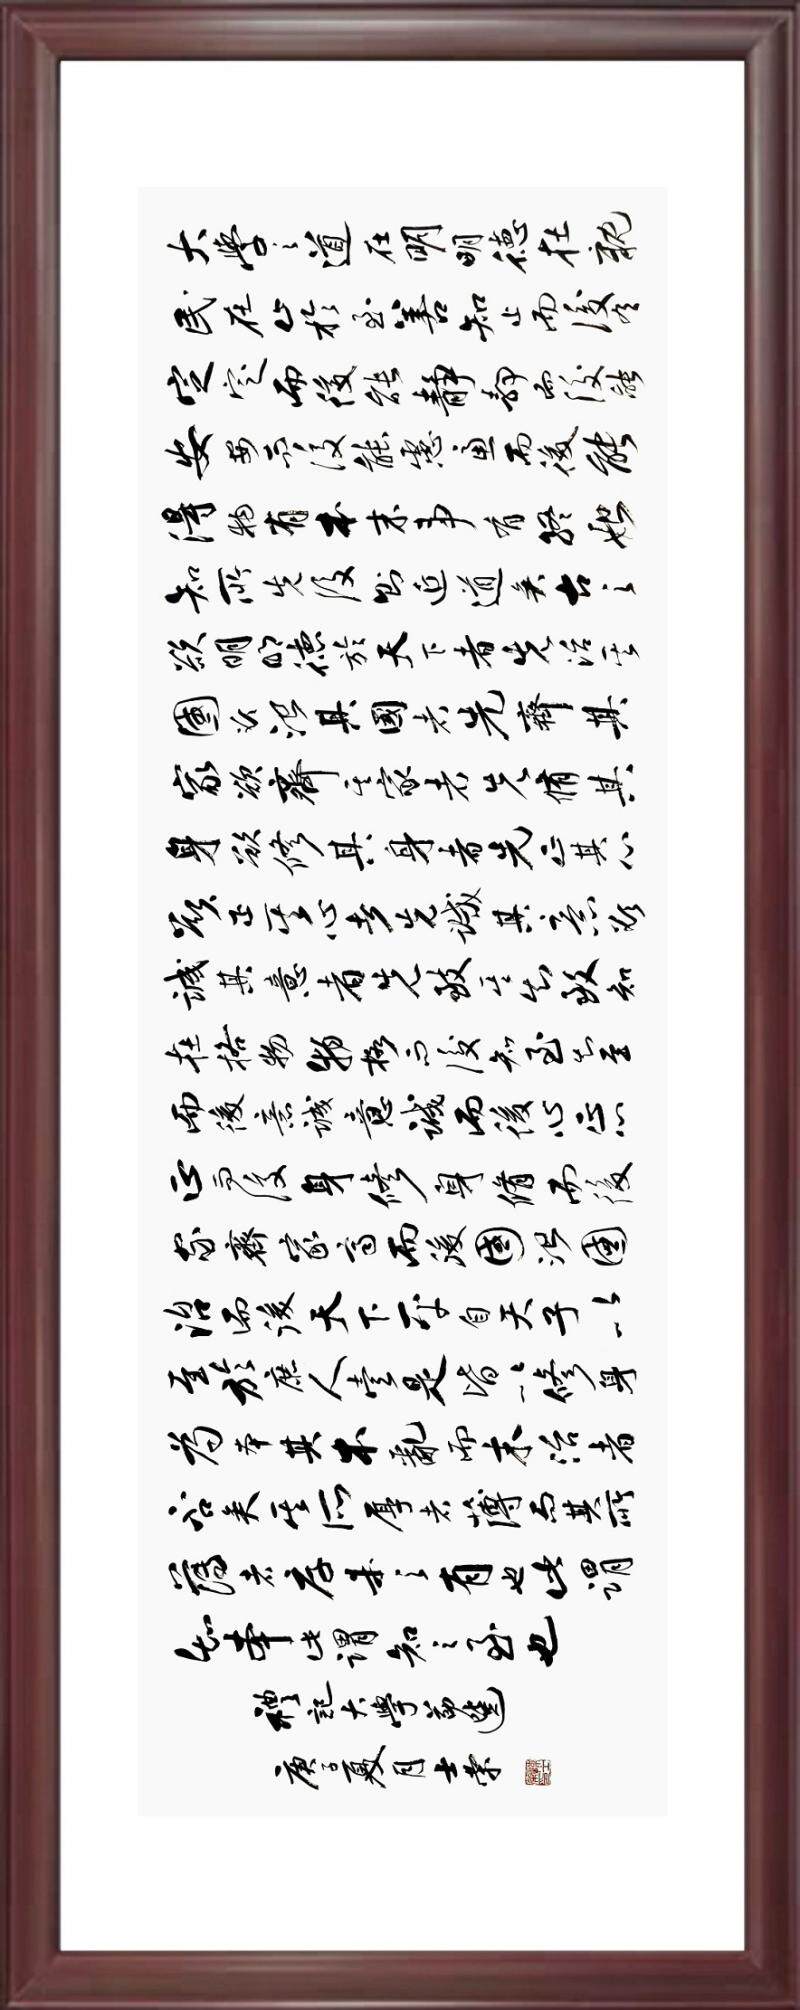 大學之道在明明德在親
民在止於至善知止而後有
定定而後能靜靜而後能
安安而後能慮慮而後能
得物有本末事有終始
知所先後則近道矣古之
欲明明德於天下者先治其
國欲治其國者先齊其
家欲齊其家者先脩其
身欲修其身者先正其心
欲正其心者先誠其意欲
誠其意者先致其知致知
在格物物格而後知至知至
而後意誠意誠而後心正心
正而後身修身脩而後
家齊家齊而後國治國
治而後天下平自天子以
至於庶人壹是皆以修身
為本其本亂而末治者
否矣其所厚者薄而其所
薄者厚未之有也此謂
知本此謂知之至也
禮記大學節選
庚子夏月士榮